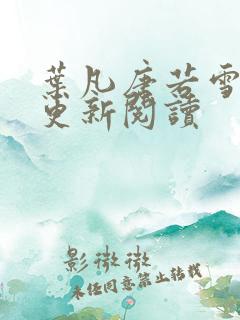 葉凡唐若雪
更新閱讀
影微微
未经同意禁止转载